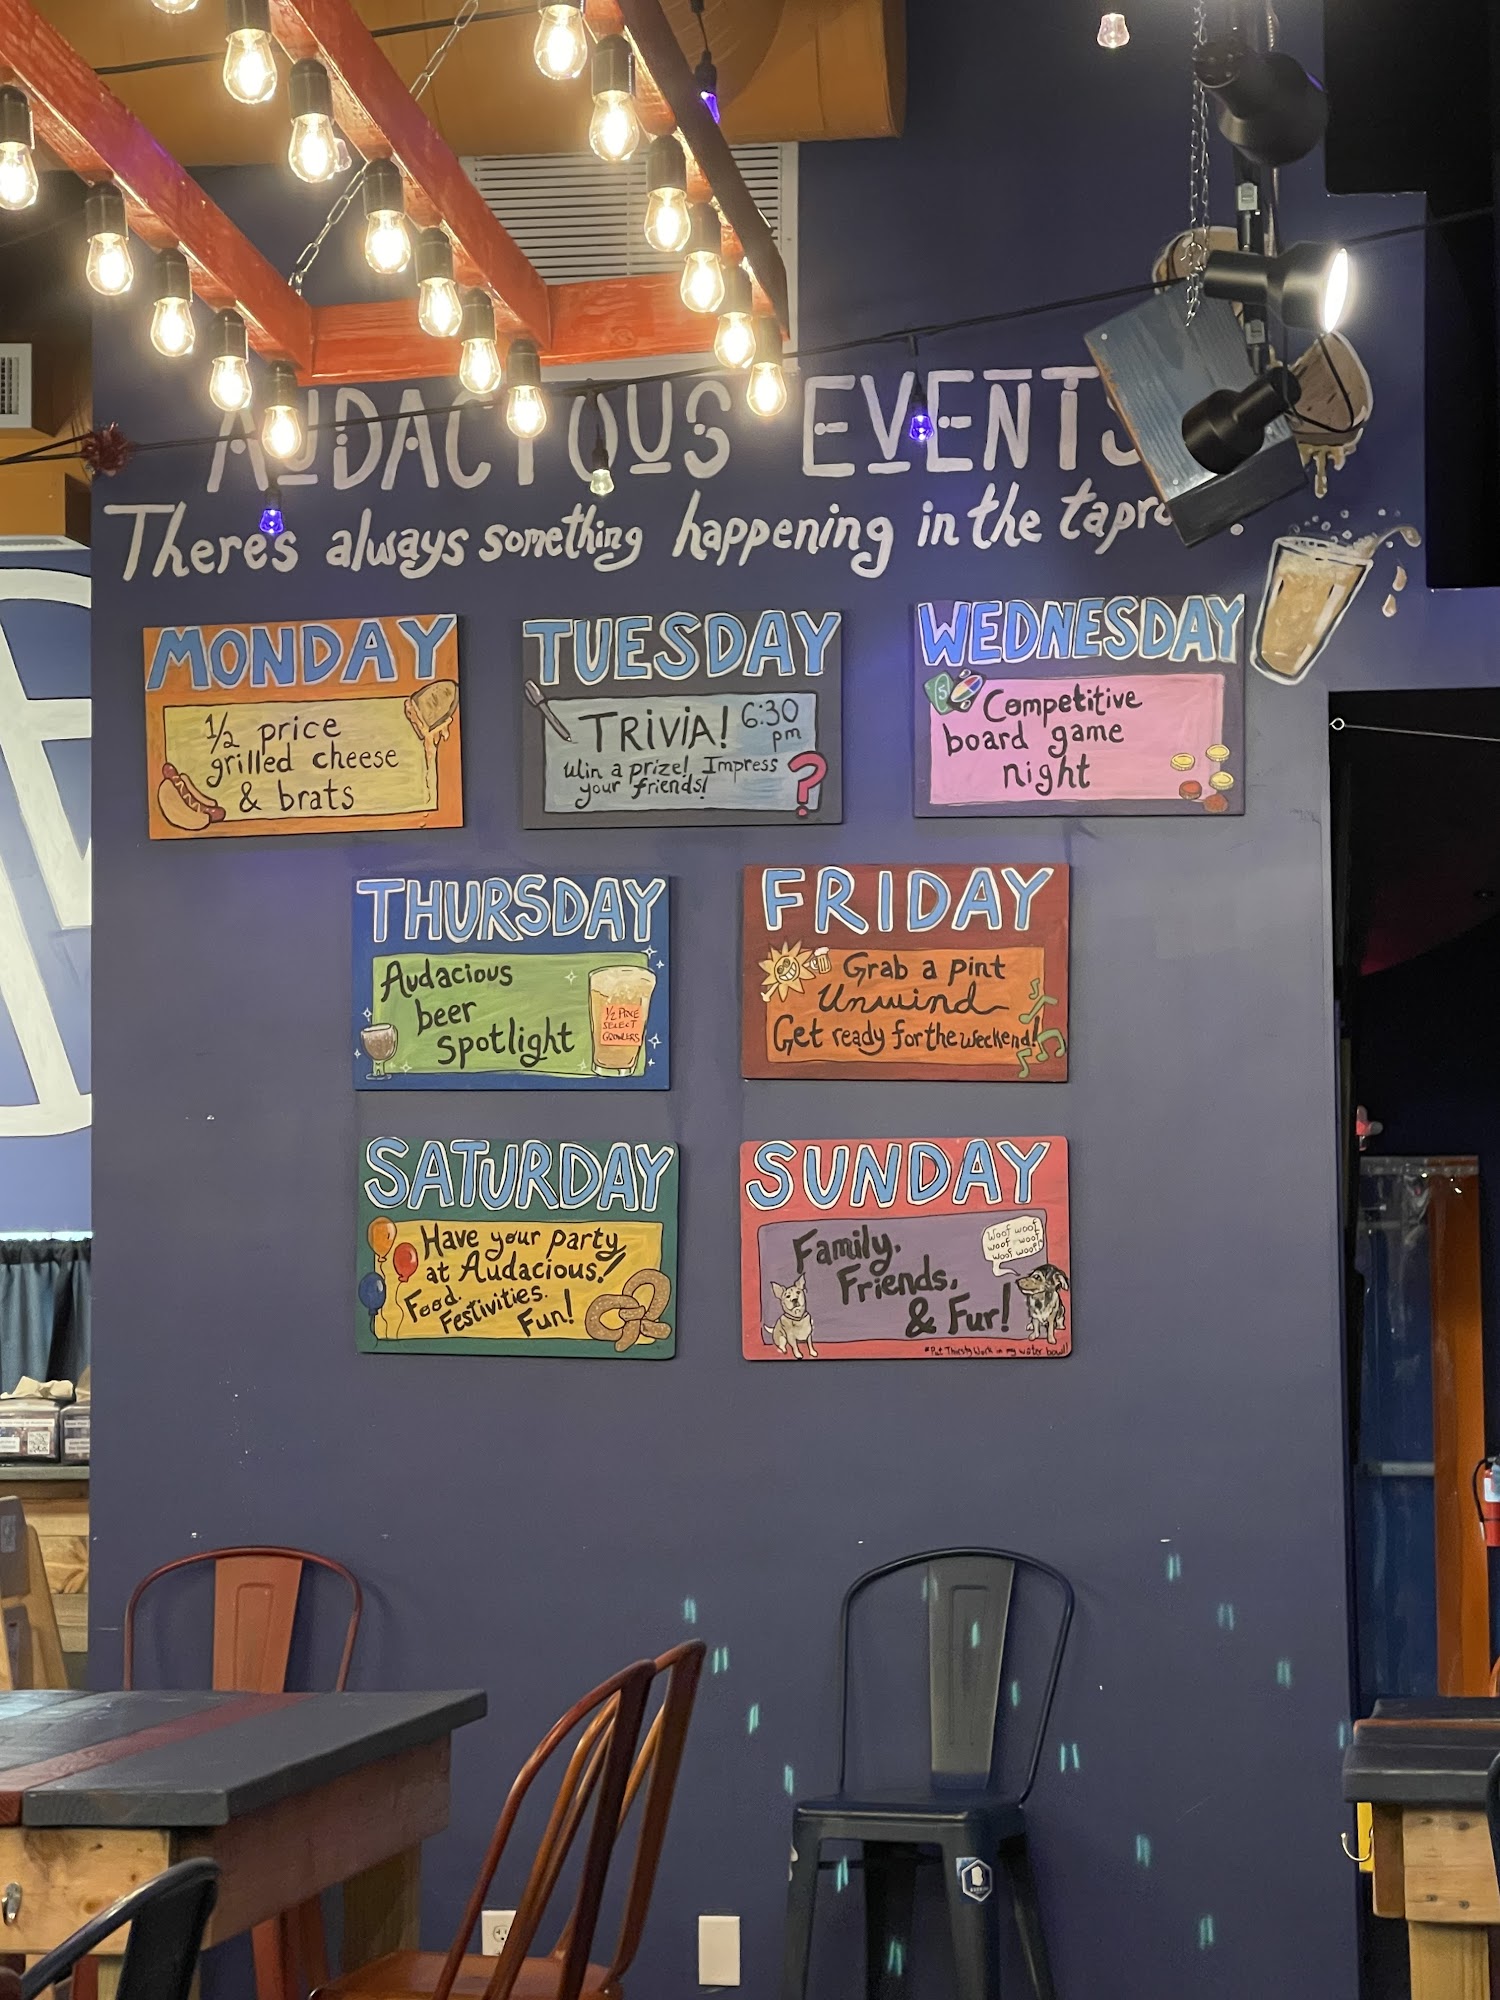 AUDACIOUS EVENTS
There's always something happening in the
MONDAY
1/2 price
grilled cheese
& brats
TUESDAY
TRIVIA! 6:30 pm
Win a prize! Impress
your friends!
WEDNESDAY
5
Competitive
board game
night
THURSDAY
Audacious
beer
spotlight
1/2 PRICE
SELECT
GROWLERS
FRIDAY
Grab a pint
Unwind
Get ready for the weekend!
SATURDAY
Have your party
at Audacious!
Food.
Festivities.
Fun!
SUNDAY
Family,
Friends,
& Fur!
Woof woof
woof woof
woof woof!
*Put Thirsty Work in my water bowl!